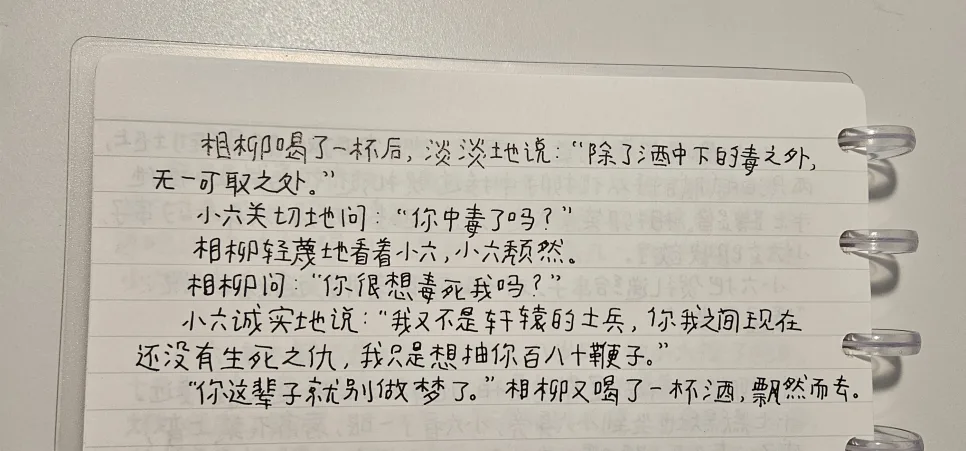 相柳喝了一杯后，淡淡地说：“除了酒中下的毒之外，
无一可取之处。”
小六关切地问：“你中毒了吗？”
相柳轻蔑地看着小六，小六颓然。
相柳问：“你很想毒死我吗？”
小六诚实地说：“我又不是轩辕的士兵，你我之间现在
还没有生死之仇，我只是想抽你百八十鞭子。”
“你这辈子就别做梦了。”相柳又喝了一杯酒，飘然而去。